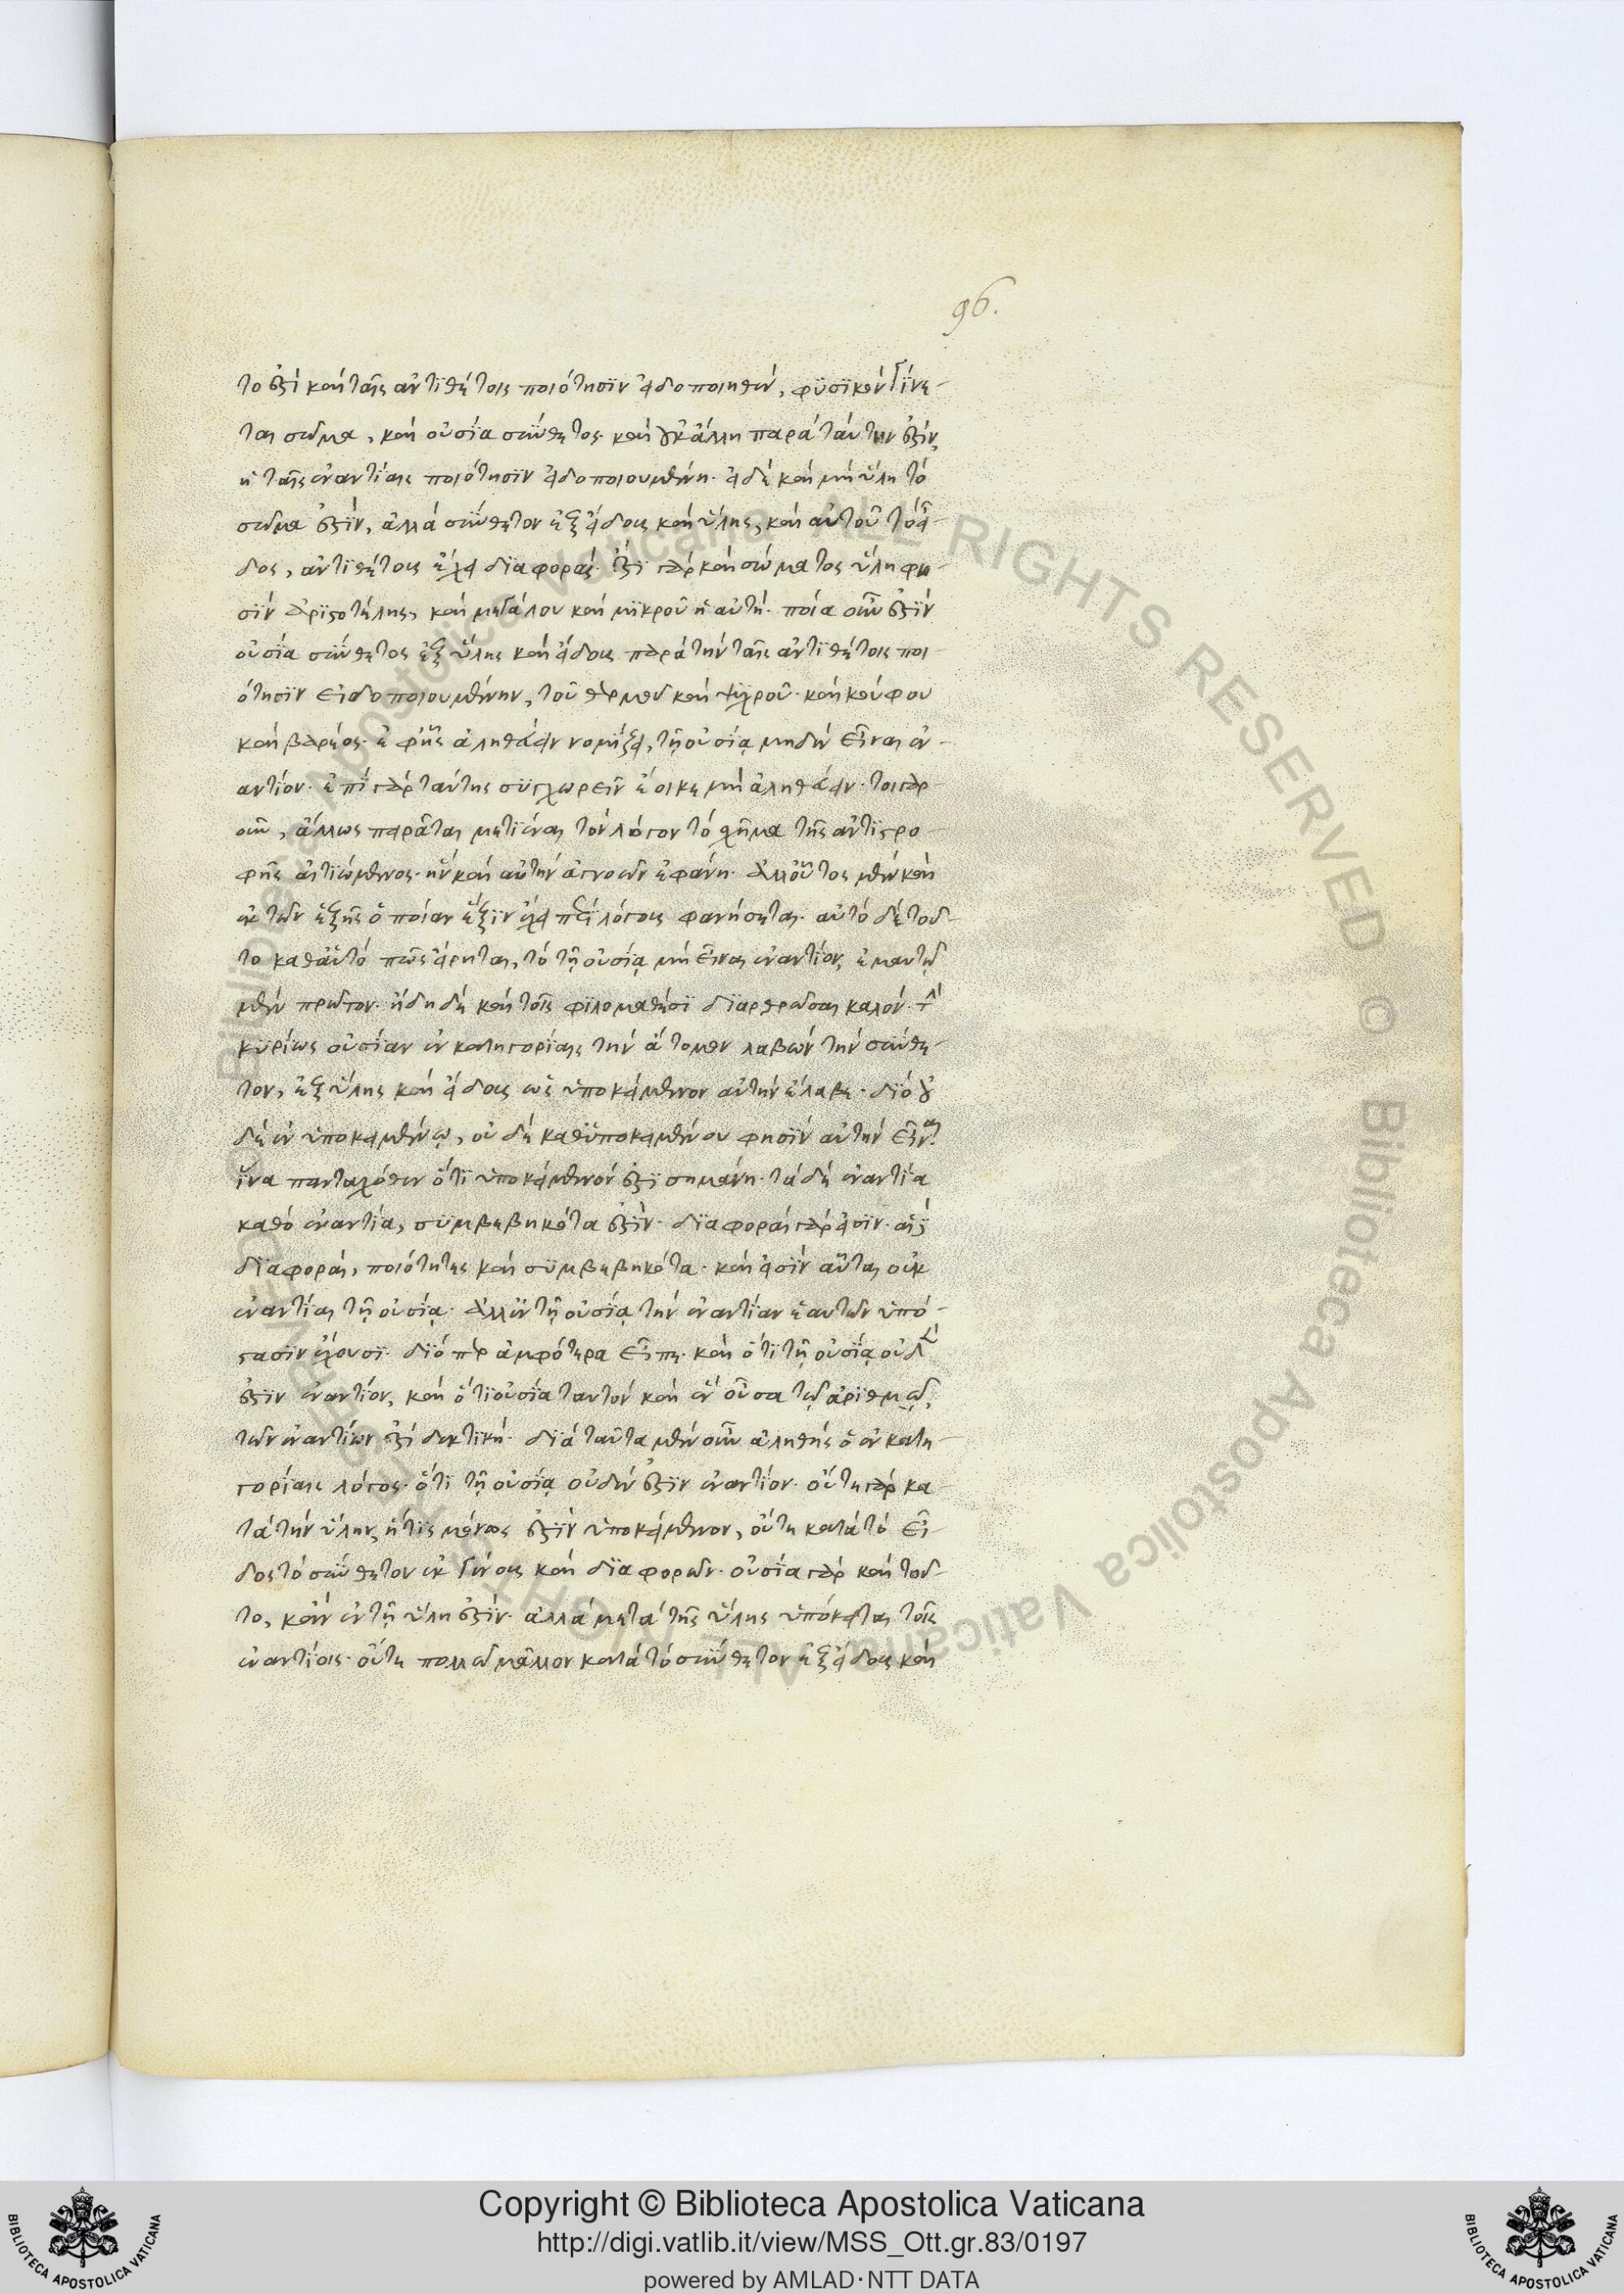 96.
τό ἐστι καὶ ταῖς ἀντιθέτοις ποιότησιν εἰδοποιηθὲν, φυσικὸν γίνε-
ται σῶμα, καὶ οὐσία σύνθετος. καὶ οὐκ ἄλλη παρὰ ταύτην ἐστὶν,
ἢ ταῖς ἐναντίαις ποιότησιν εἰδοποιουμένη. εἰ δὲ καὶ μὴ ὕλη τὸ
σῶμα ἐστὶν, ἀλλὰ σύνθετον ἐξ εἴδους καὶ ὕλης, καὶ αὐτοῦ τὸ εἶ-
δος, ἀντιθέτους ἔχει διαφοράς. ἔστι γὰρ καὶ σώματος ὕλη φη-
σὶν ἀριστοτέλης, καὶ μεγάλου καὶ μικροῦ ἡ αὐτή. ποία οὖν ἐστὶν
οὐσία σύνθετος ἐξ ὕλης καὶ εἴδους παρὰ τὴν ταῖς ἀντιθέτοις ποι-
ότησιν εἰδοποιουμένην, τοῦ θερμοῦ καὶ ψυχροῦ. καὶ κούφου
καὶ βαρέος. ἐφ' ἧς ἀληθεύειν νομίζει, τῇ οὐσίᾳ μηδὲν εἶναι ἐν-
αντίον. ἐπὶ γὰρ ταύτης συγχωρεῖν ἔοικε μὴ ἀληθεύειν. τοιγαρ-
οῦν, ἄλλως πειρᾶται μετιέναι τὸν λόγον τὸ σχῆμα τῆς ἀντιστρο-
φῆς αἰτιώμενος. ἣν καὶ αὐτὴν ἀγνοῶν ἐφάνη. ἀλλ' οὗτος μὲν καὶ
ἐκ τῶν ἑξῆς ὁποίαν ἕξιν ἔχει περὶ λόγους φανήσεται. αὐτὸ δὲ τοῦ-
το καθ' αὑτὸ πῶς εἴρηται, τὸ τῇ οὐσίᾳ μὴ εἶναι ἐναντίον, ἐμαυτῷ
μὲν πρῶτον. ἤδη δὲ καὶ τοῖς φιλομαθέσι διαρθρῶσαι καλόν. τὴν
κυρίως οὐσίαν ἐν κατηγορίαις τὴν ἄτομον λαβὼν τὴν σύνθε-
τον, ἐξ ὕλης καὶ εἴδους ὡς ὑποκείμενον αὐτὴν ἔλαβε. διὸ οὐ-
δὲ ἐν ὑποκειμένῳ, οὐδὲ καθ' ὑποκειμένου φησὶν αὐτὴν εἶναι.
ἵνα πανταχόθεν ὅτι ὑποκείμενόν ἐστι σημαίνῃ. τὰ δὲ ἐναντία
καθὸ ἐναντία, συμβεβηκότα ἐστίν. διαφοραὶ γὰρ εἰσίν. αἱ δὲ
διαφοραὶ, ποιότητες καὶ συμβεβηκότα. καὶ εἰσὶν αὗται οὐκ
ἐναντίαι τῇ οὐσίᾳ. ἀλλ' ἐν τῇ οὐσίᾳ τὴν ἐναντίαν ἑαυτῶν ὑπό-
στασιν ἔχουσι. διόπερ ἀμφότερα εἶπε. καὶ ὅτι τῇ οὐσίᾳ οὐδέν
ἐστιν ἐναντίον, καὶ ὅτι οὐσία ταυτὸν καὶ ἓν οὖσα τῷ ἀριθμῷ,
τῶν ἐναντίων ἐστὶ δεκτική. διὰ ταῦτα μὲν οὖν ἀληθὴς ὁ ἐν κατη-
γορίαις λόγος. ὅτι τῇ οὐσίᾳ οὐδέν ἐστιν ἐναντίον. οὔτε γὰρ κα-
τὰ τὴν ὕλην, ἥτις μόνως ἐστὶν ὑποκείμενον, οὔτε κατὰ τὸ εἶ-
δος τὸ σύνθετον ἐκ γένους καὶ διαφορῶν. οὐσία γὰρ καὶ τοῦ-
το, κἂν ἐν τῇ ὕλῃ ἐστίν. ἀλλὰ μετὰ τῆς ὕλης ὑπόκειται τοῖς
ἐναντίοις. οὔτε πολλῷ μᾶλλον κατὰ τὸ σύνθετον ἐξ εἴδους καὶ
Copyright © Biblioteca Apostolica Vaticana
http://digi.vatlib.it/view/MSS_Ott.gr.83/0197
powered by AMLAD·NTT DATA